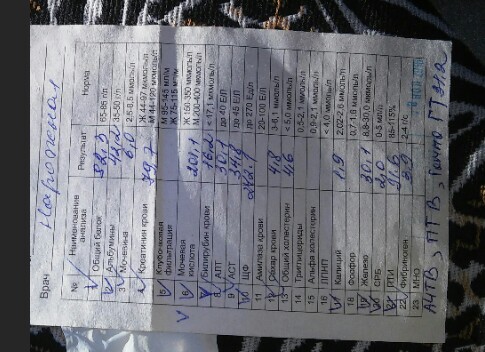 Врач
№ Наименование анализа Результат Норма
Общий белок 82,3 65-85 г/л
2 Альбумины 43,2 35-50 г/л
3 Мочевина 6,0 2,5-8,5 ммоль/л
Креатинин крови 79,7 Ж 44-97 ммоль/л
М 44-120 ммоль/л
Клубочковая фильтрация
6 Мочевая кислота 201,1 Ж 160-350 ммоль/л
М 200-400 ммоль/л
Билирубин крови 16,2 < 17,1 мкмоль/л
8 АЛТ 30,1 до 40 Е/Л
9 АСТ 34,8 до 45 Е/Л
10 ЩФ до 270 Е/Л
11 Амилаза крови 20-100 Е/Л
12 Сахар крови 4,8 3-6,1 ммоль/л
13 Общий холестерин 4,6 < 5,0 ммоль/л
14 Триглицериды 0,5-2,1 ммоль/л
15 Альфа холестерин 0,9-2,1 ммоль/л
16 ЛПНП < 4,0 ммоль/л
Кальций 1,9
18 Фосфор 0,7-1,6 ммоль/л
Железо 30,1 8,8-30,0 ммоль/л
СРБ 2,0 0-5 мг/л
ПТИ 85-115%
22 Фибриноген 3,9 2-4 г/с
23 МНО
АЧТВ, ПТВ,